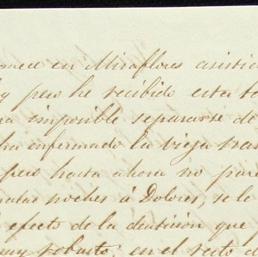 en Miraflores asistie
y pero he recibido esta ta
imposible separarse de
ha enfermado la vieja
pero hasta ahora no pare
malas noches á Dolores, se lo
efecto de la denticion que
muy robusto, en el resto d